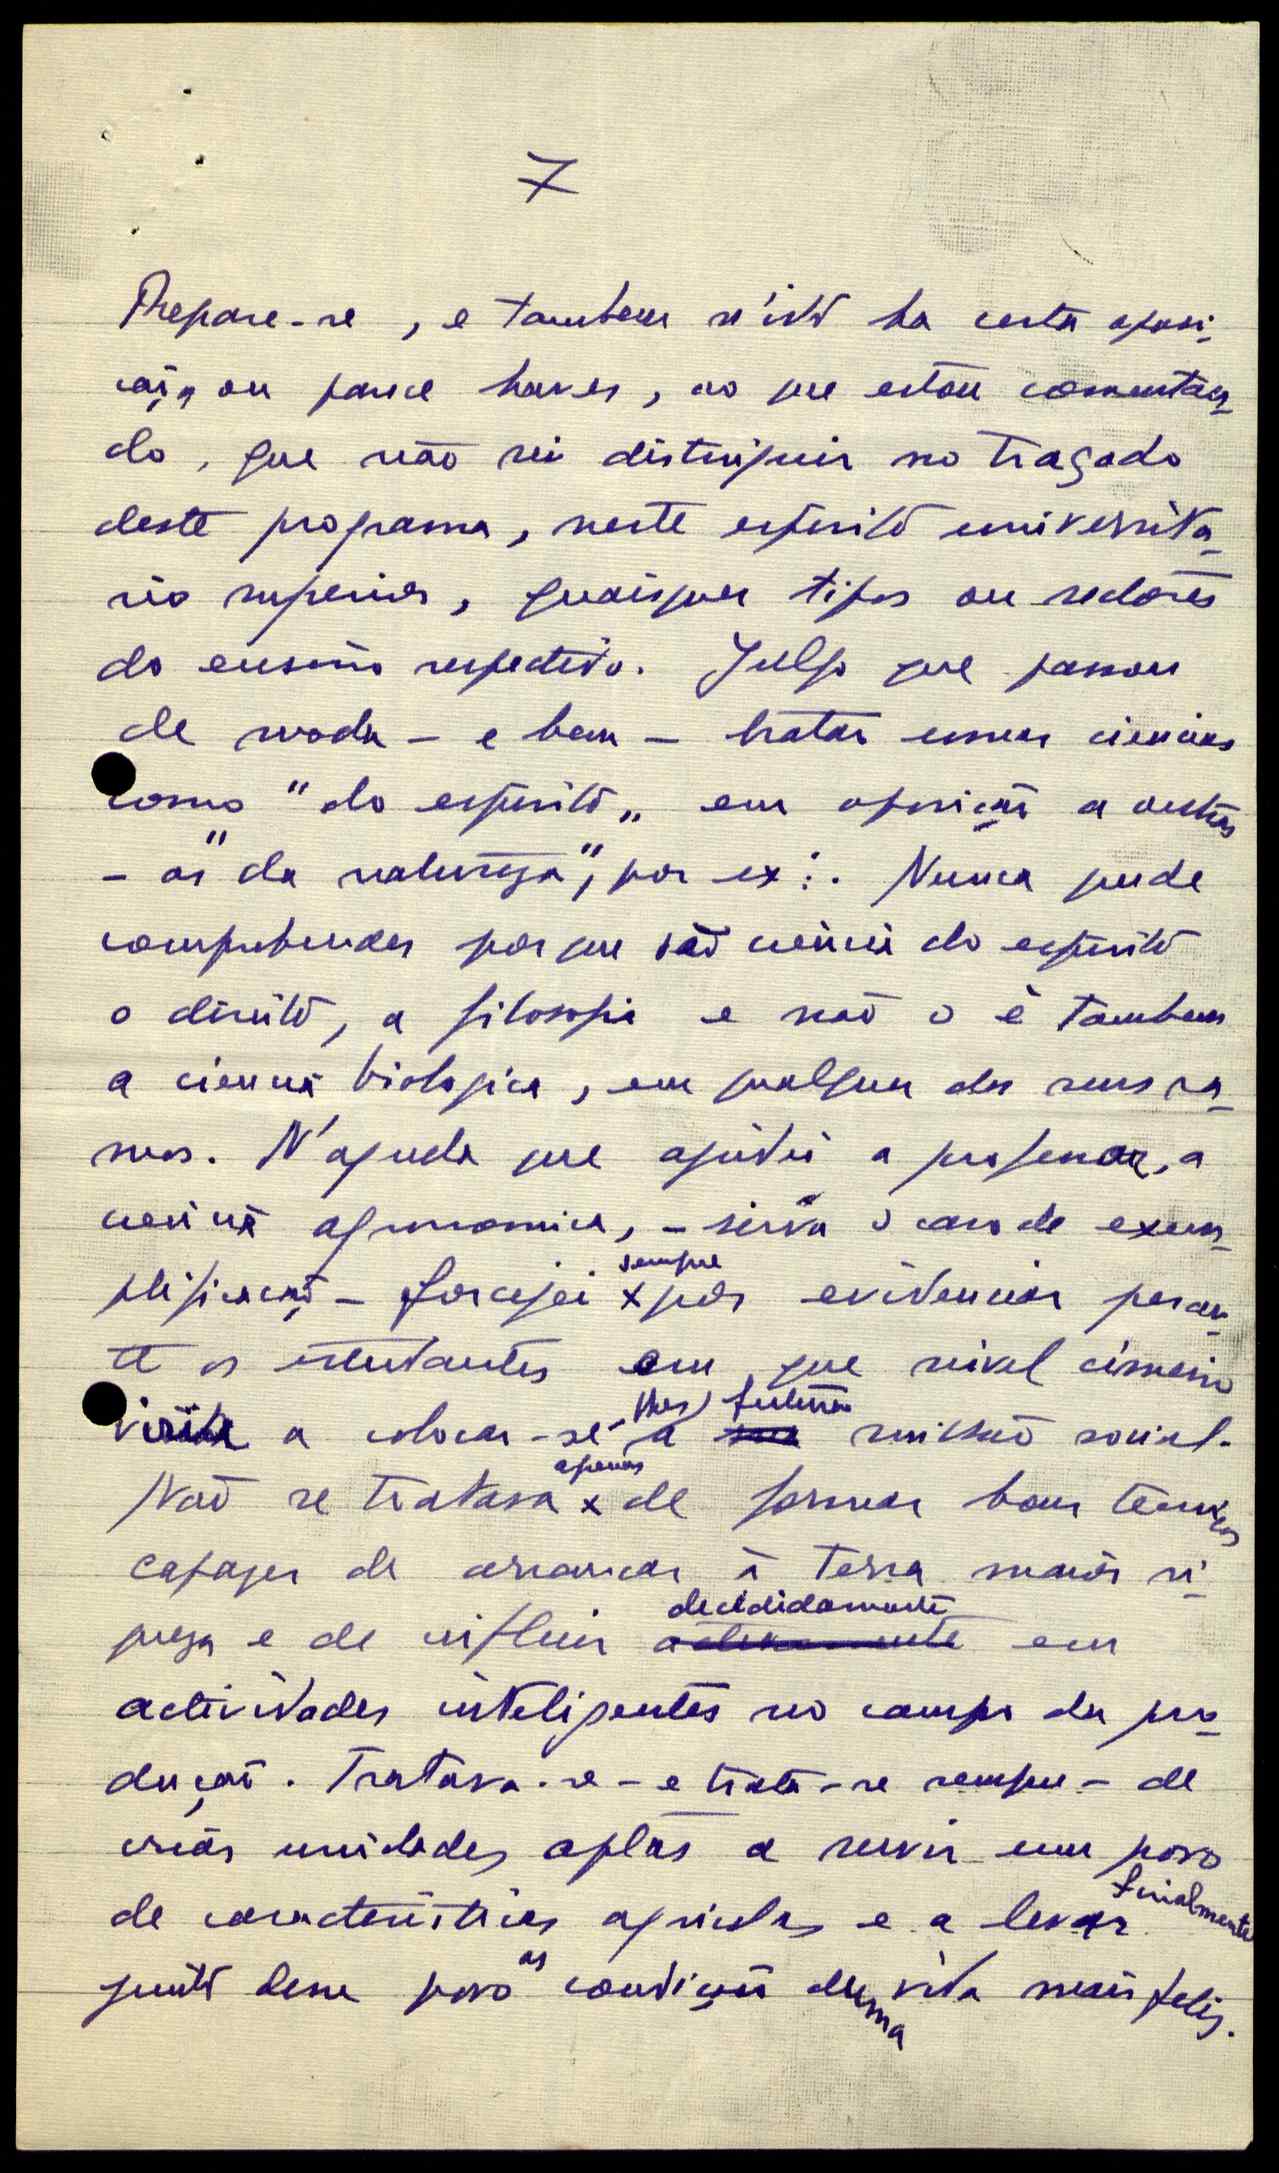 7
Repare-se, e tambem n'isto ha certa oposi-
ção, ou parece haver, ao que estou comentan-
do, que não sei distinguir no traçado
deste programa, neste espirito universita-
rio superior, quaisquer tipos ou sectores
do ensino respectivo. Julgo que passou
de moda – e bem – tratar umas ciencias
como "do espirito" em oposição a outras
– as "da natureza", por ex:. Nunca pude
comprehender porque são ciencia do espirito
o direito, a filosofia e não o é tambem
a ciencia biologica, em qualquer dos seus ra-
mos. N'aquela que ajudei a professar, a
ciencia agronomica, – sirva o caso de exem-
plificação – forcejei sempre por evidenciar peran-
te os estudantes em que nivel cimeiro
viria a colocar-se-lhes a futura missão social.
Não se tratava apenas de formar bons tecnicos
capazes de arrancar à terra maior ri-
queza e de influir decididamente em
actividades inteligentes no campo da pro-
dução. Tratava-se – e trata-se sempre – de
criar unidades aptas a servir um povo
de caracteristicas agricolas e a levar finalmente
junto desse povo as condições duma vida mais feliz.